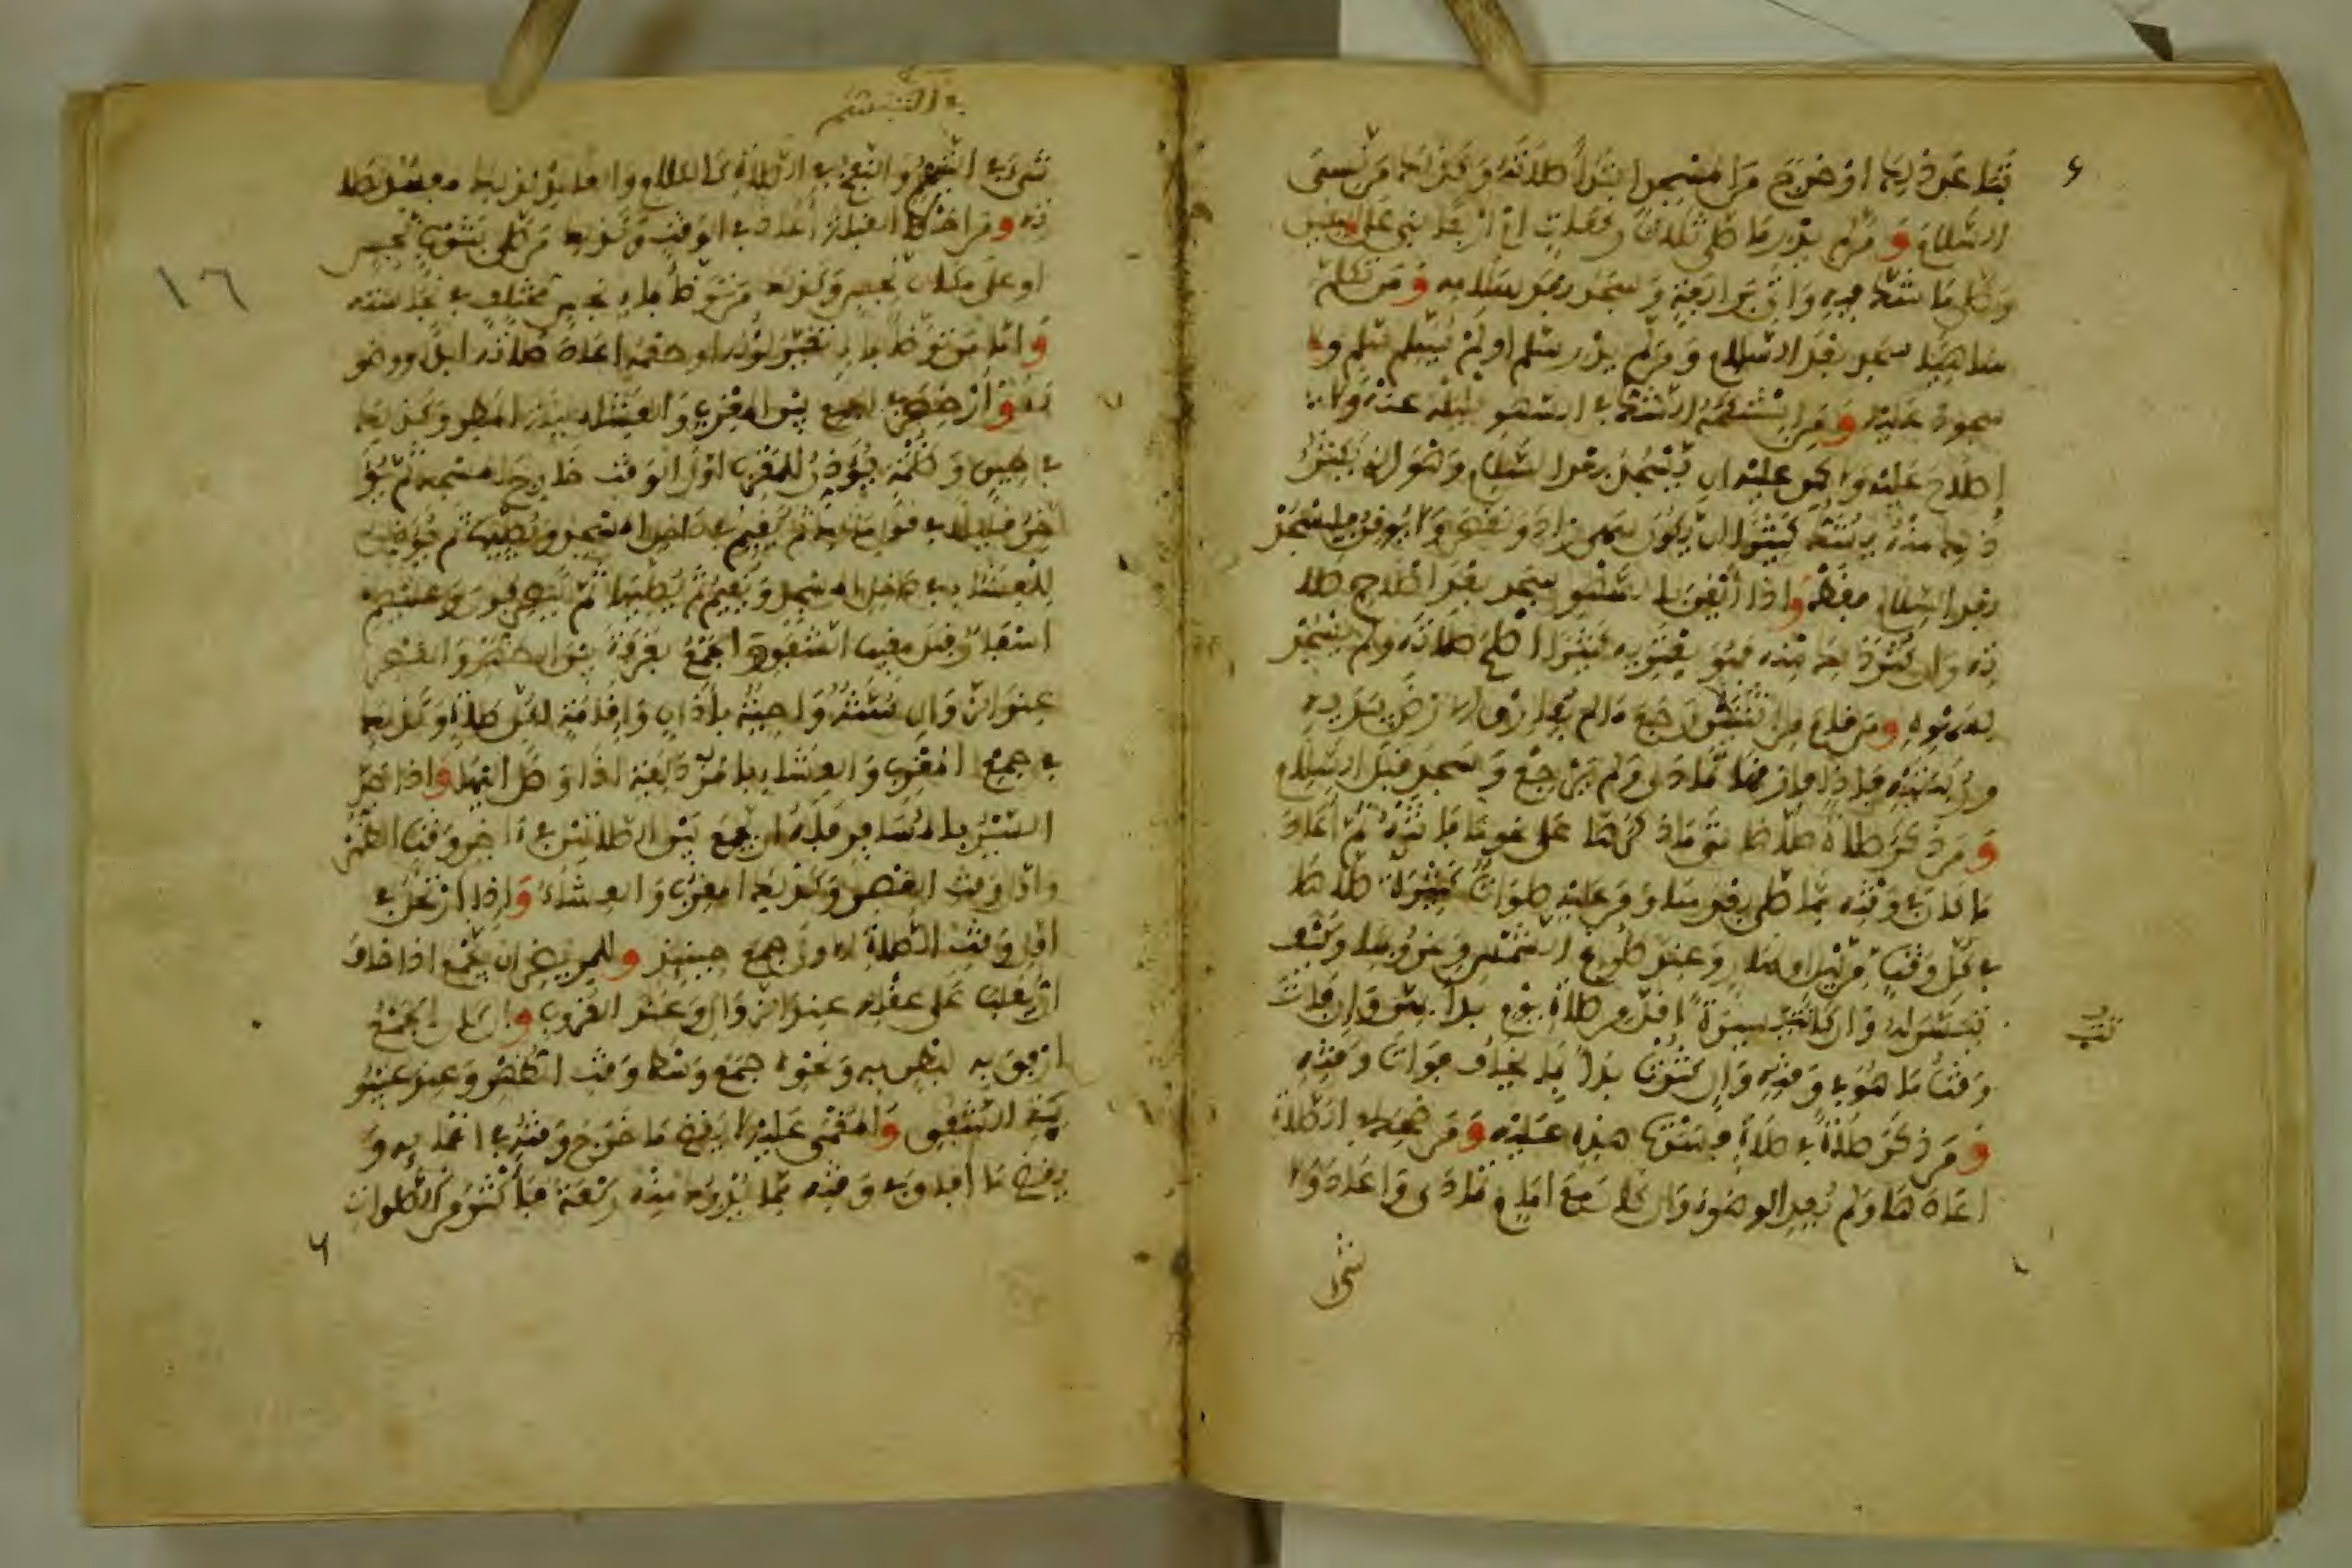 تباعد ذلك او خرج من المسجد ابتدأ صلاته وكذلك من نسي
السلام ومن لم يدر ما صلى ثلاث ركعات ام اربعا بنى على اليقين
وصلى ما شك فيه واتى برابعة وسجد بعد سلامه ومن تكلم
ساهيا سجد بعد السلام ومن لم يدر سلم او لم يسلم سلم ولا
سجود عليه ومن استنكحه الشك في السهو فليله عنه ولا
إصلاح عليه ولكن عليه ان يسجد بعد السلام وهو الذي يكثر
ذلك منه يشك كثيرا ان يكون سهى زاد او نقص ولا يوقن فليسجد
بعد السلام فقط واذا أيقن بالسهو سجد بعد اصلاح صلا
ته وان كثر ذلك منه فهو يعتريه كثيرا اصلح صلاته ولم يسجد
لسهوه ومن قام من اثنتين رجع ما لم يفارق الارض بيديه
وركبتيه فإذا فارقها تمادى ولم يرجع وسجد قبل السلام
ومن ذكر صلاة صلاها متى ما ذكرها على نحو ما فاتته ثم أعاد
ما كان في وقته مما صلى بعدها ومن عليه صلوات كثيرة صلاها
في كل وقت من ليل او نهار وعند طلوع الشمس وعند غروبها وكيف
تيسر له وان كانت يسيرة اقل من صلاة يوم بدأ بهن وإن فات
وقت ما هو في وقته وان كثرت بدأ بما يخاف فوات وقته
ومن ذكر صلاة في صلاة فسدت هذه عليه ومن ضحك في الصلاة
اعادها ولم يعد الوضوء وان كان مع امام تمادى واعاد ولا
شيء
في التبسم
شيء في التبسم والنفخ في الصلاة كالكلام والعامد لذلك مفسد لصلا
ته ومن اخطأ القبلة أعاد في الوقت وكذلك من صلى بثوب نجس
او على مكان نجس وكذلك من توضأ بماء نجس مختلف في نجاسته
وأما من توضأ بماء تغير لونه او طعمه اعاد صلاته ابدا ووضو
ءه وأرخص في الجمع بين المغرب والعشاء ليلة المطر وكذلك
في طين وظلمة يؤذن للمغرب اول الوقت خارج المسجد ثم يؤ
خر قليلا في قول مالك ثم يقيم في داخل المسجد ويصليها ثم يؤذن
للعشاء في داخل المسجد ويقيم ثم يصليها ثم ينصرفون وعليهم
اسفار قبل مغيب الشفق والجمع بعرفة بين الظهر والعصر
عند الزوال سنة واجبة بأذان وإقامة لكل صلاة وكذلك
في جمع المغرب والعشاء بالمزدلفة اذا وصل اليها واذا جد
السير بالمسافر فله ان يجمع بين الصلاتين في آخر وقت الظهر
واول وقت العصر وكذلك المغرب والعشاء وإذا ارتحل في
اول وقت الصلاة الاولى جمع حينئذ وللمريض ان يجمع اذا خاف
ان يغلب على عقله عند الزوال وعند الغروب وان كان الجمع
ارفق به لبطن به ونحوه جمع وسط وقت الظهر وعند غيبو
بة الشفق والمغمى عليه لا يقضي ما خرج وقته في اغمائه و
يقضي ما افاق في وقته مما يدرك منه ركعة فأكثر من الصلوات
١٦